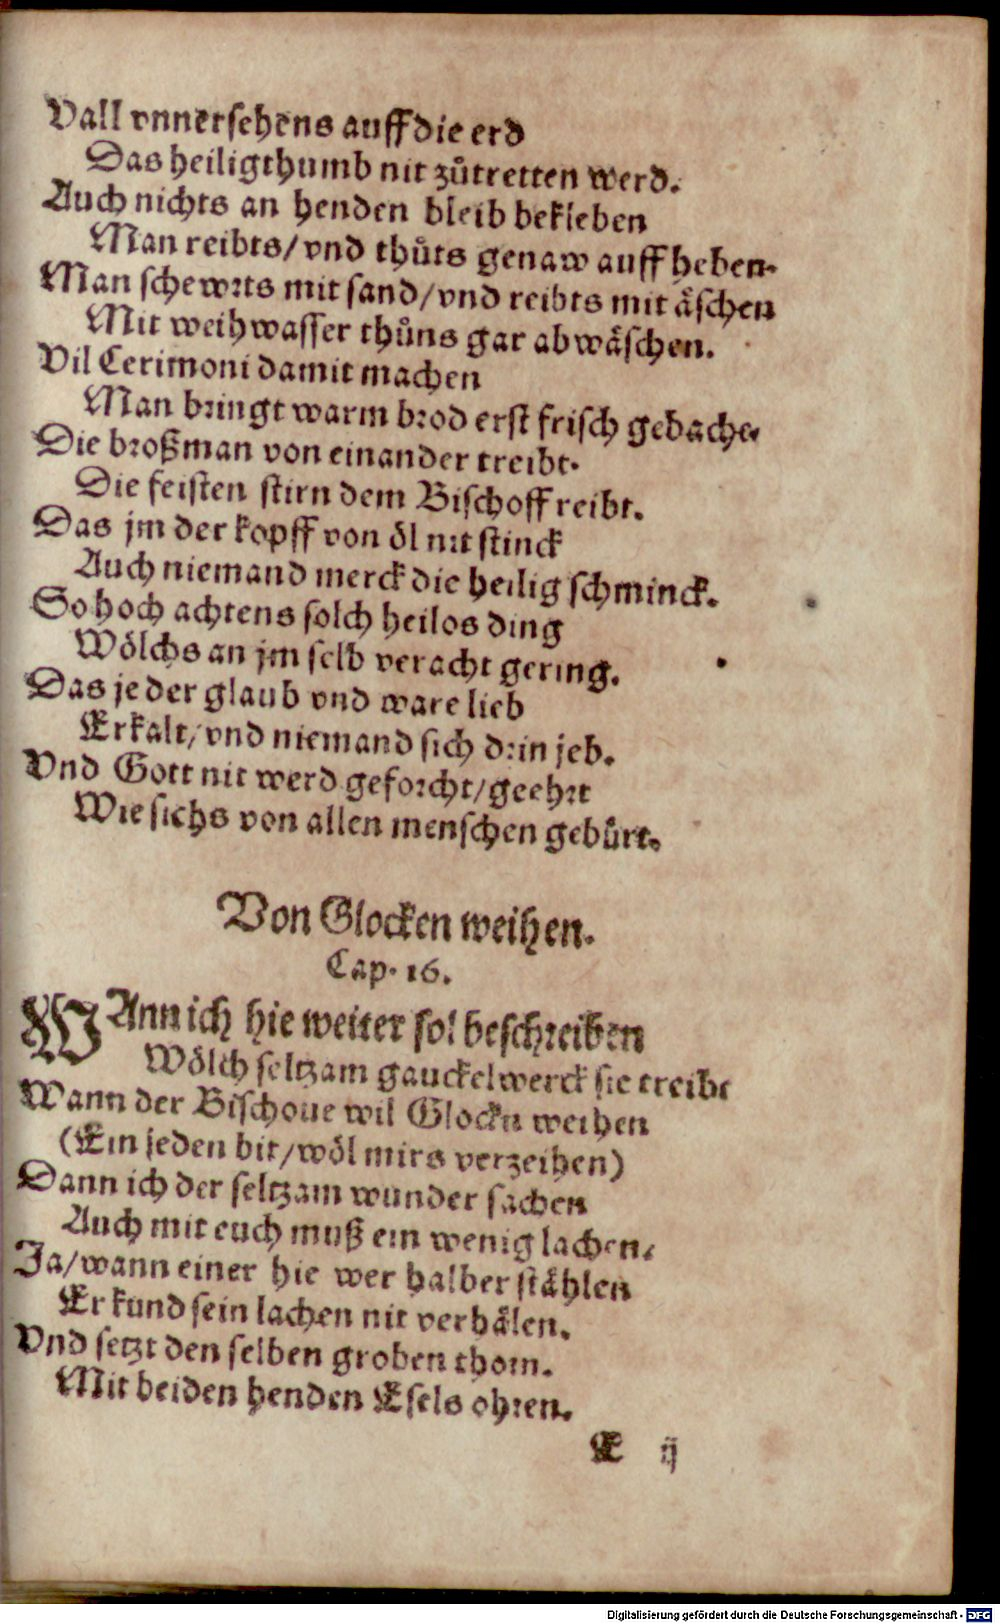 Vall vnnersehens auff die erd
Das heiligthumb nit zůtretten werd.
Auch nichts an henden bleib bekleben
Man reibts/ vnd thůts genaw auff heben.
Man schewrts mit sand/ vnd reibts mit äschen
Mit weihwasser thůns gar abwäschen.
Vil Cerimoni damit machen
Man bringt warm brod erst frisch gebache
Die broßman von einander treibt.
Die feisten stirn dem Bischoff reibt.
Das jm der kopff von öl nit stinck
Auch niemand merck die heilig schminck.
So hoch achtens solch heilos ding
Wölchs an jm selb veracht gering.
Das je der glaub vnd ware lieb
Erkalt/ vnd niemand sich drin jeb.
Vnd Gott nit werd geforcht/ geehrt
Wie sichs von allen menschen gebürt.
Von Glocken weihen.
Cap. 16.
WAnn ich hie weiter sol beschreiben
Wölch seltzam gauckelwerck sie treibt
Wann der Bischoue wil Glockn weihen
(Ein jeden bit/ wöl mirs verzeihen)
Dann ich der seltzam wunder sachen
Auch mit euch muß ein wenig lachen.
Ja/ wann einer hie wer halber stählen
Er kund sein lachen nit verhälen.
Vnd setzt den selben groben thorn.
Mit beiden henden Esels ohren.
E ij
Digitalisierung gefördert durch die Deutsche Forschungsgemeinschaft - DFG